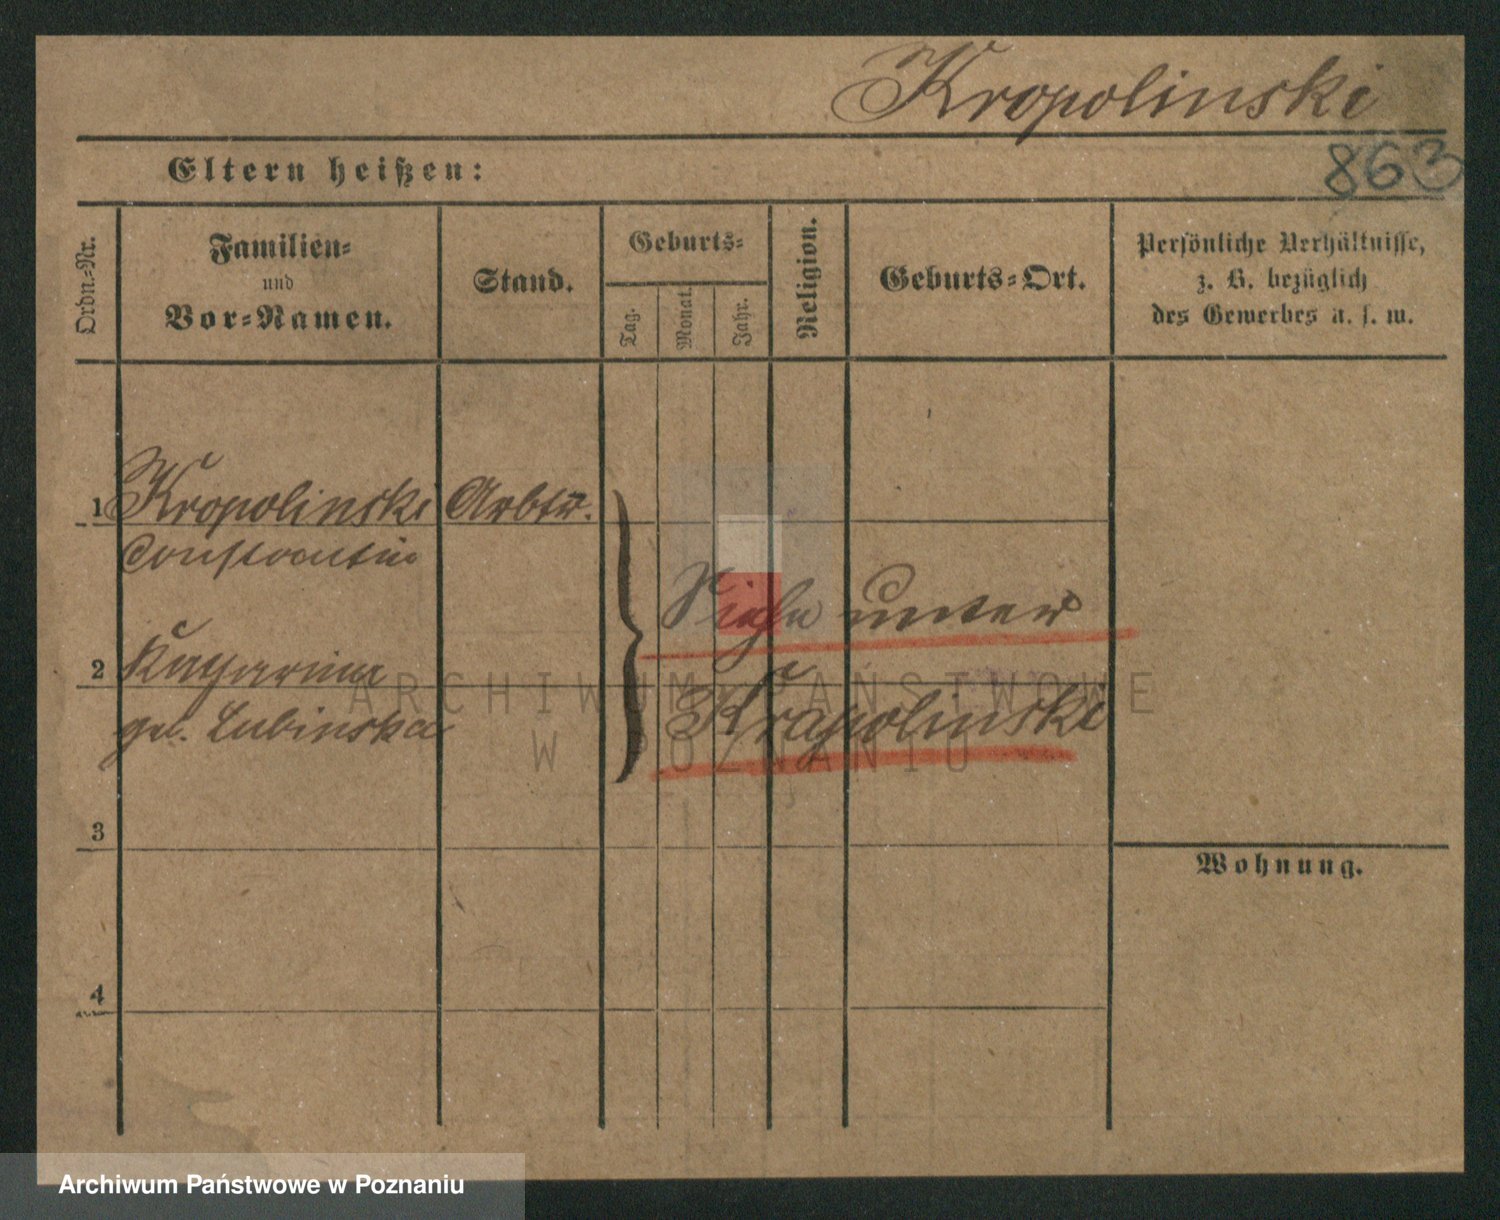 Kropolinski
863
Eltern heißen:
Ordn.-Nr.
Familien-
und
Vor-Namen.
Stand.
Geburts-
Tag.
Monat.
Jahr.
Religion.
Geburts-Ort.
Persönliche Verhältnisse,
z. B. bezüglich
des Gewerbes u. s. w.
1 Kropolinski Arbtr.
Constantin
Siehe unter
2 Katharina
geb. Lubinska
Krapolinski
ARCHIWUM PAŃSTWOWE
W POZNANIU
3
Wohnung.
4
Archiwum Państwowe w Poznaniu